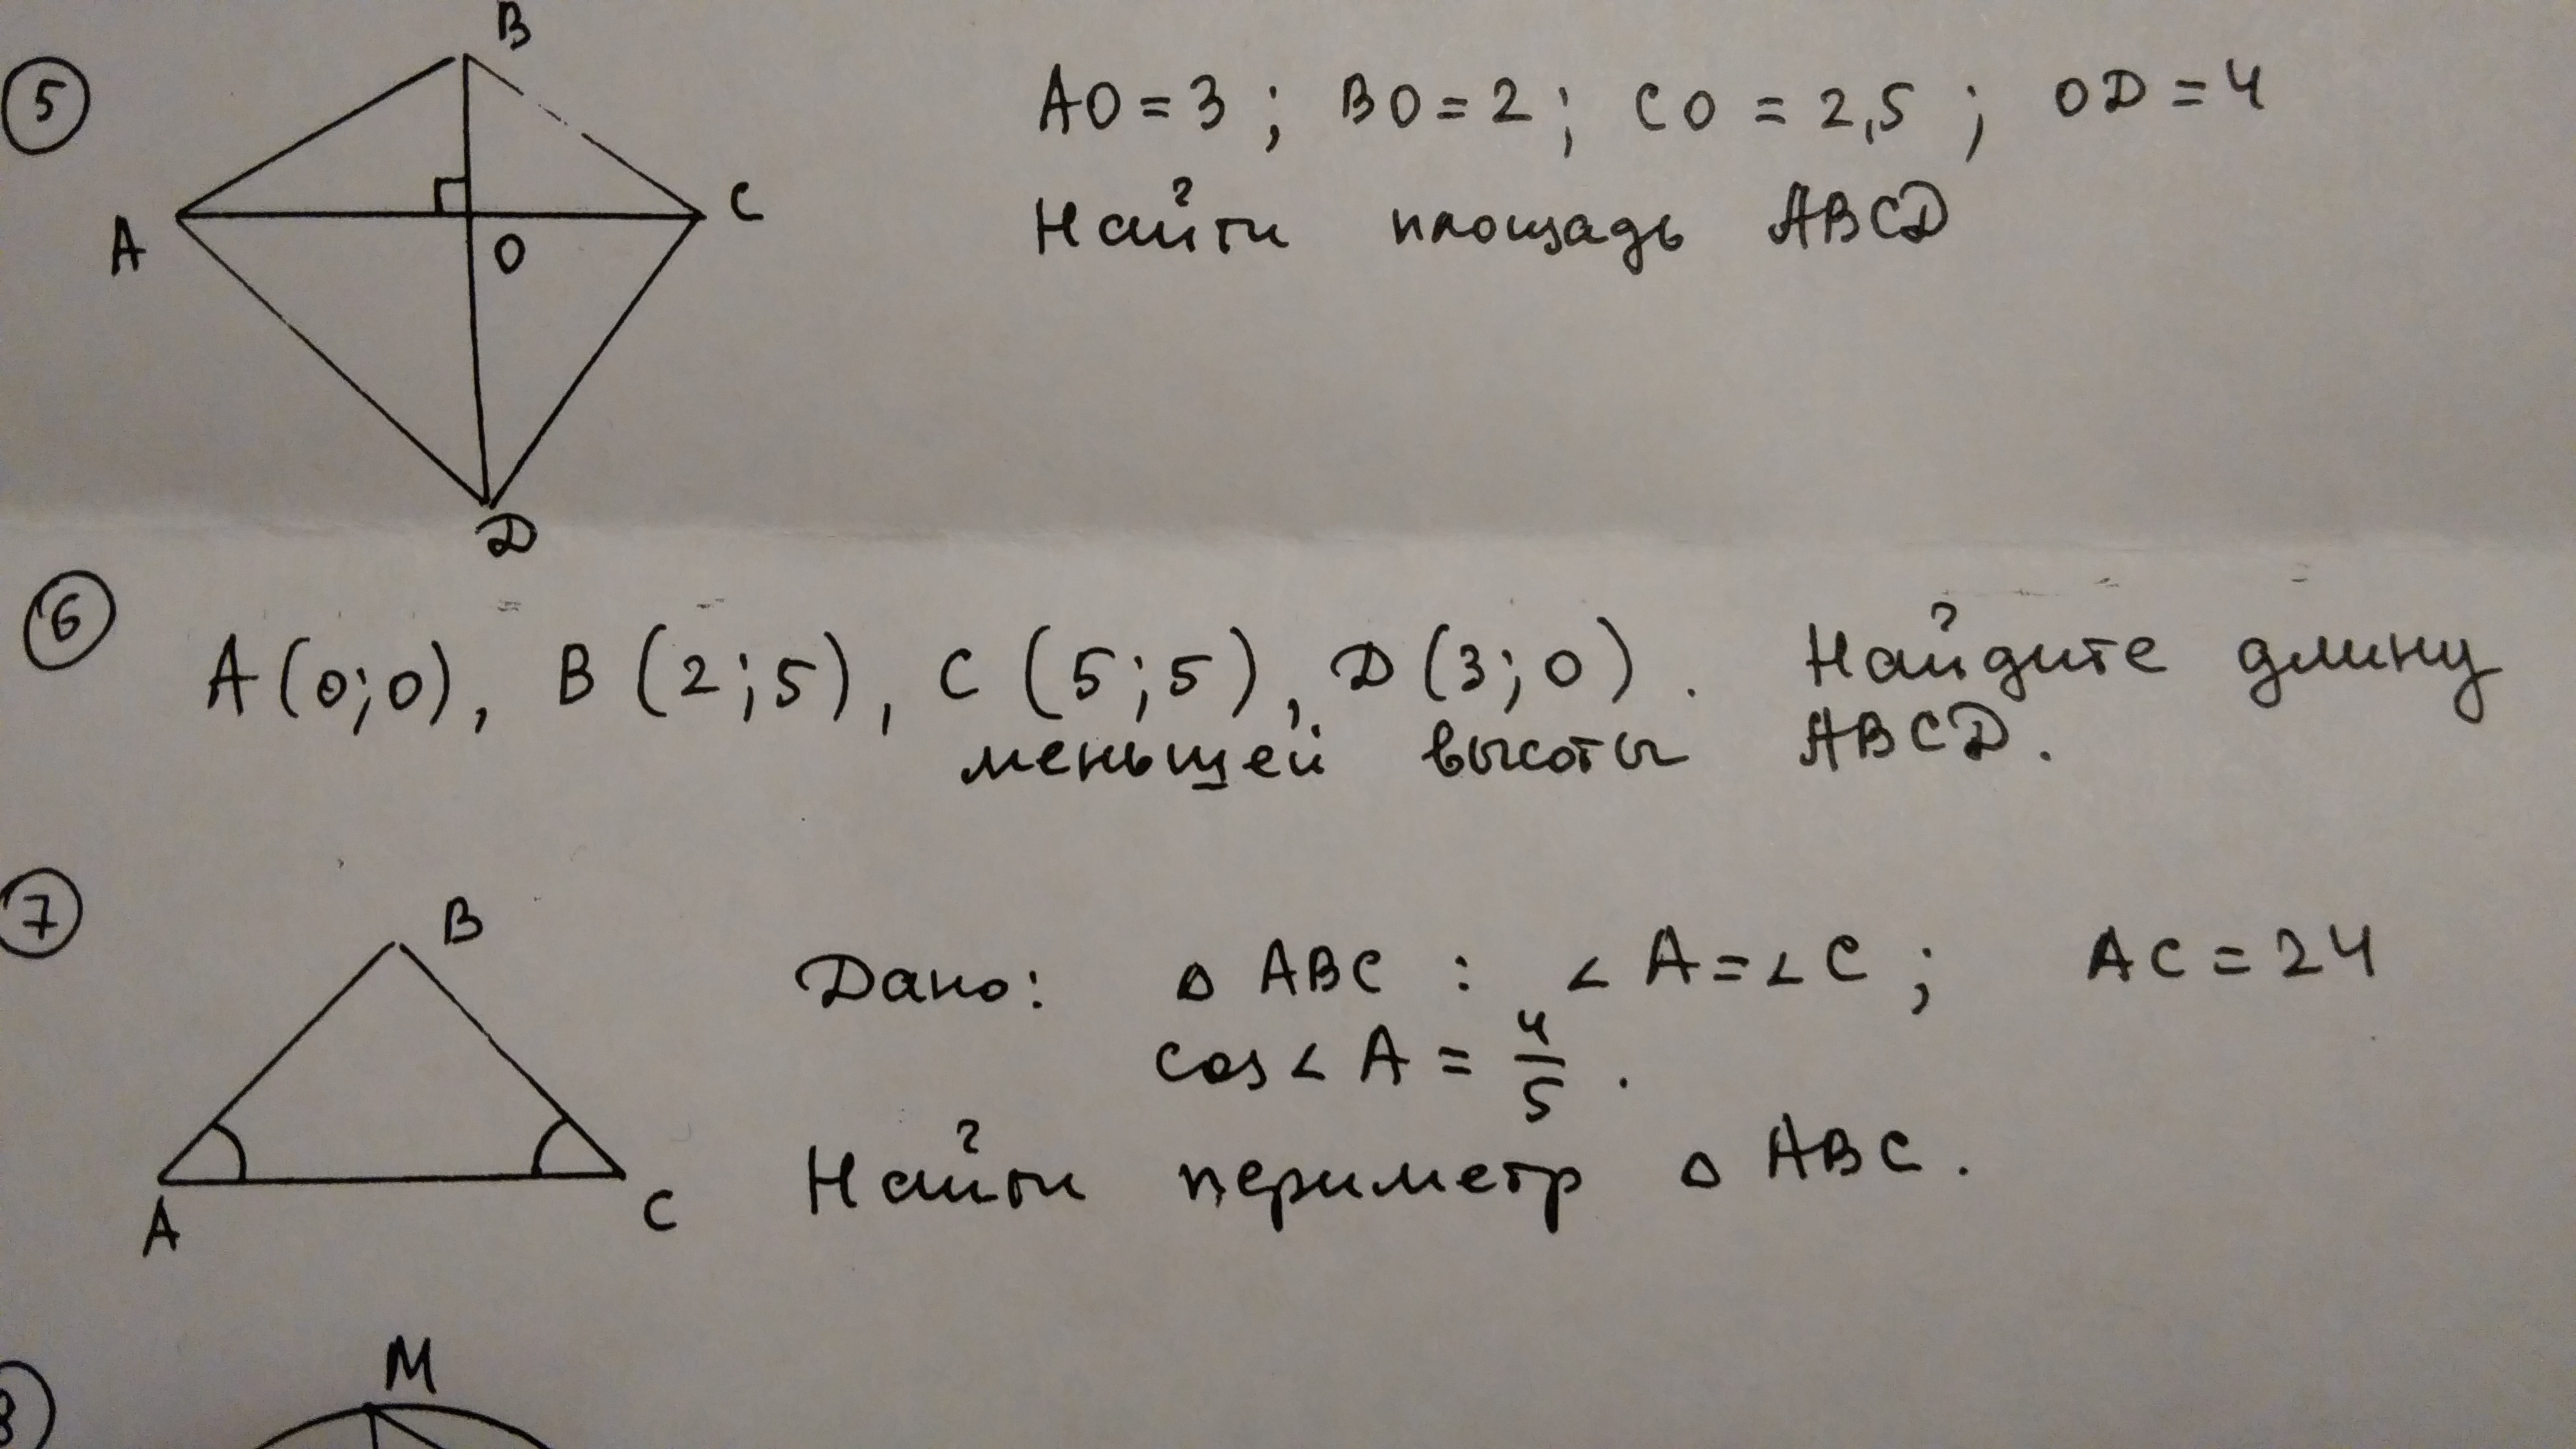 5
B
A
C
O
D
AO = 3 ; BO = 2 ; CO = 2,5 ; OD = 4
Найти площадь ABCD
6
A (0;0), B (2;5), C (5;5), D (3;0). Найдите длину
меньшей высоты ABCD.
7
B
A
C
Дано: △ ABC : ∠ A = ∠ C ; AC = 24
cos ∠ A = 4/5 .
Найти периметр △ ABC.
8
M